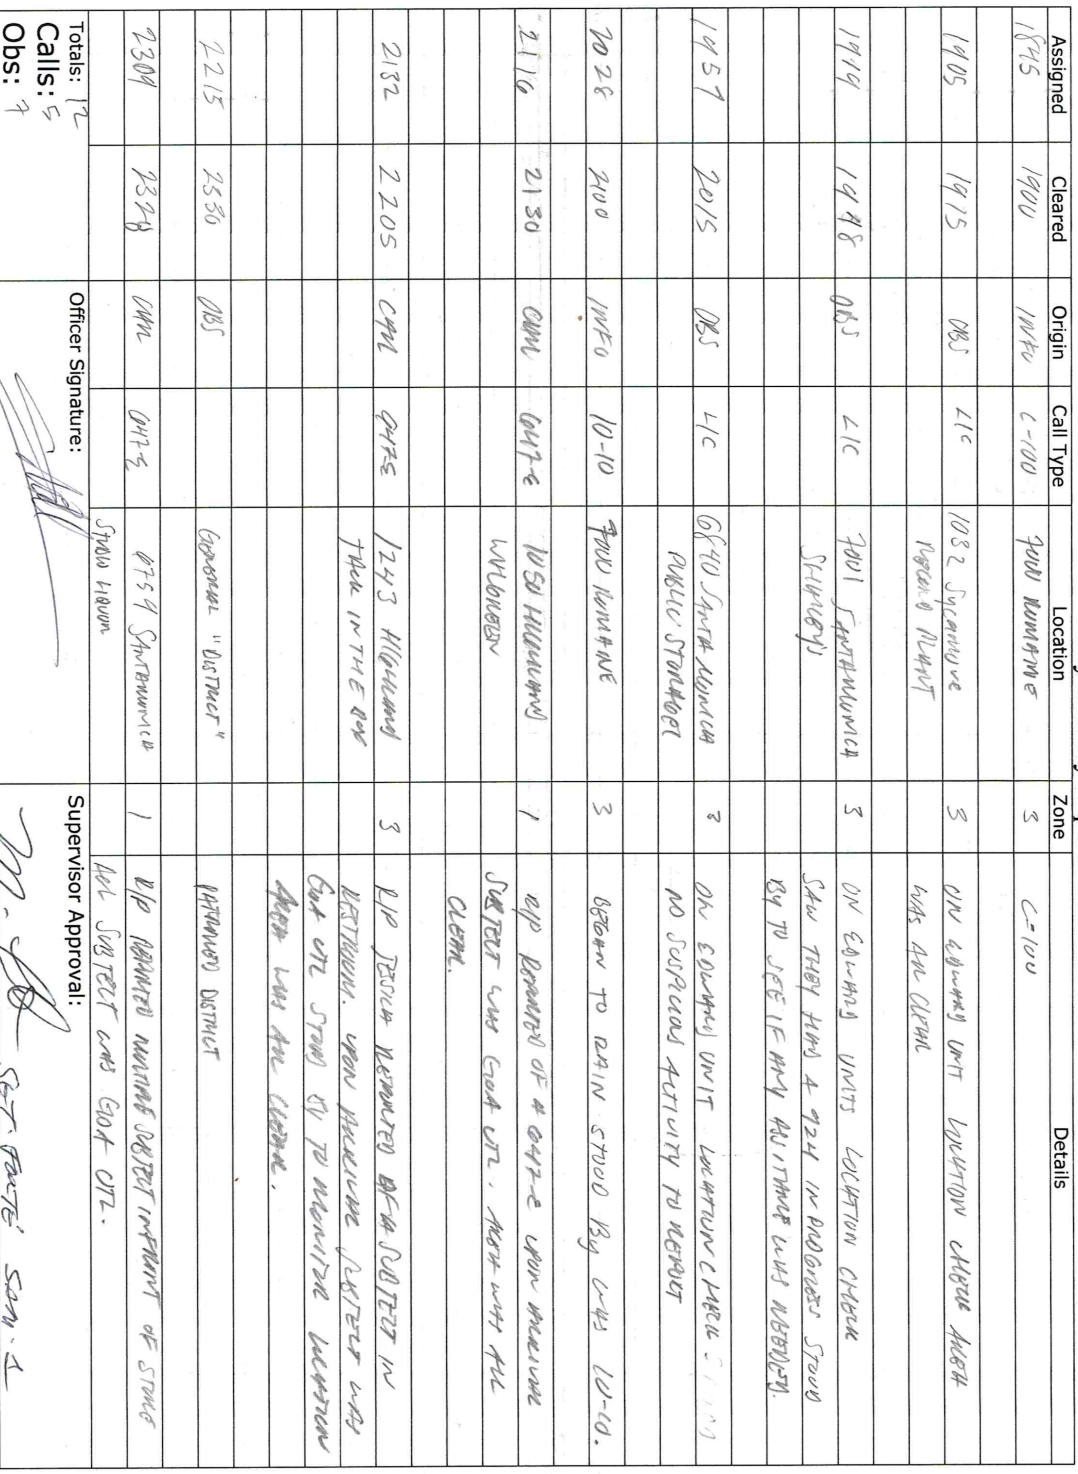 Assigned Cleared Origin Call Type Location Zone Details
1845 1900 INFO C-100 7000 ROMAINE 3 C-100
1905 1925 OBS L/C 1032 Sycamore 3 ON EDWARD UNIT LOCATION CHECK AREA
RECORD PLANT WAS ALL CLEAR
OBS L/C 7001 SANTA MONICA 3 ON EDWARD UNITS LOCATION CHECK
SHAKEY'S SAW THEY HAD A 924 IN PROGRESS STOOD
BY TO SEE IF ANY ASSITANCE WAS NEEDED.
1957 2015 OBS L/C 6840 SANTA MONICA 3 ON EDWARD UNIT LOCATION CHECK
PUBLIC STORAGE NO SUSPICIOUS ACTIVITY TO REPORT
2028 2100 INFO 10-10 7000 ROMAINE 3 BEGAN TO RAIN STOOD BY WAS 10-10.
2116 2130 COM 647-E 1050 HIGHLAND 1 R/P REPORTED OF A 647-E UPON ARRIVAL
SUBJECT WAS GOA UTL. AREA WAS ALL
CLEAR.
2132 2205 COM 647-E 1243 HIGHLAND 3 R/P JESSICA REPORTED OF A SUBJECT IN
THEM IN THE RESTROOM. UPON ARRIVAL SUBJECT WAS
GOA UTL STOOD BY TO MONITOR LOCATION
AREA WAS ALL CLEAR.
2215 OBS GENERAL "DISTRICT" PATROLLED DISTRICT
2309 COM 647-E SANTA MONICA 1 R/P REPORTED SUBJECT INFRONT OF STORE
LIQUOR SUBJECT WAS GOA UTL.
Totals: 12
Calls: 5
Obs: 7
Officer Signature:
Supervisor Approval:
SGT.